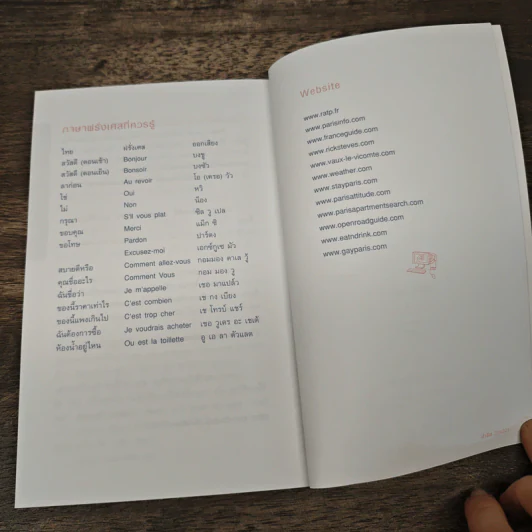 ภาษาฝรั่งเศสที่ควรรู้
ไทย ฝรั่งเศส ออกเสียง
สวัสดี (ตอนเช้า) Bonjour บงชู
สวัสดี (ตอนเย็น) Bonsoir บงซัว
ลาก่อน Au revoir โอ (เครอ) วัว
ใช่ Oui หวิ
ไม่ Non น็อง
กรุณา S'il vous plat ซิล วู เปล
ขอบคุณ Merci แม็ก ซี
ขอโทษ Pardon ปาร์ดง
Excusez-moi เอกซ์กูเซ มัว
สบายดีหรือ Comment allez-vous กอมมอง ตาเล วู้
คุณชื่ออะไร Comment Vous กอม มอง วู
ฉันชื่อว่า Je m'appelle เชอ มาแปล์ว
ของนี้ราคาเท่าไร C'est combien เซ กง เบียง
ของนี้แพงเกินไป C'est trop cher เซ โทรป์ แชร์
ฉันต้องการซื้อ Je voudrais acheter เชอ วูเดร อะ เชเต้
ห้องน้ำอยู่ไหน Ou est la toillette อู เอ ลา ตัวแลต
Website
www.ratp.fr
www.parisinfo.com
www.franceguide.com
www.ricksteves.com
www.vaux-le-vicomte.com
www.weather.com
www.stayparis.com
www.parisattitude.com
www.parisapartmentsearch.com
www.openroadguide.com
www.eatndrink.com
www.gayparis.com